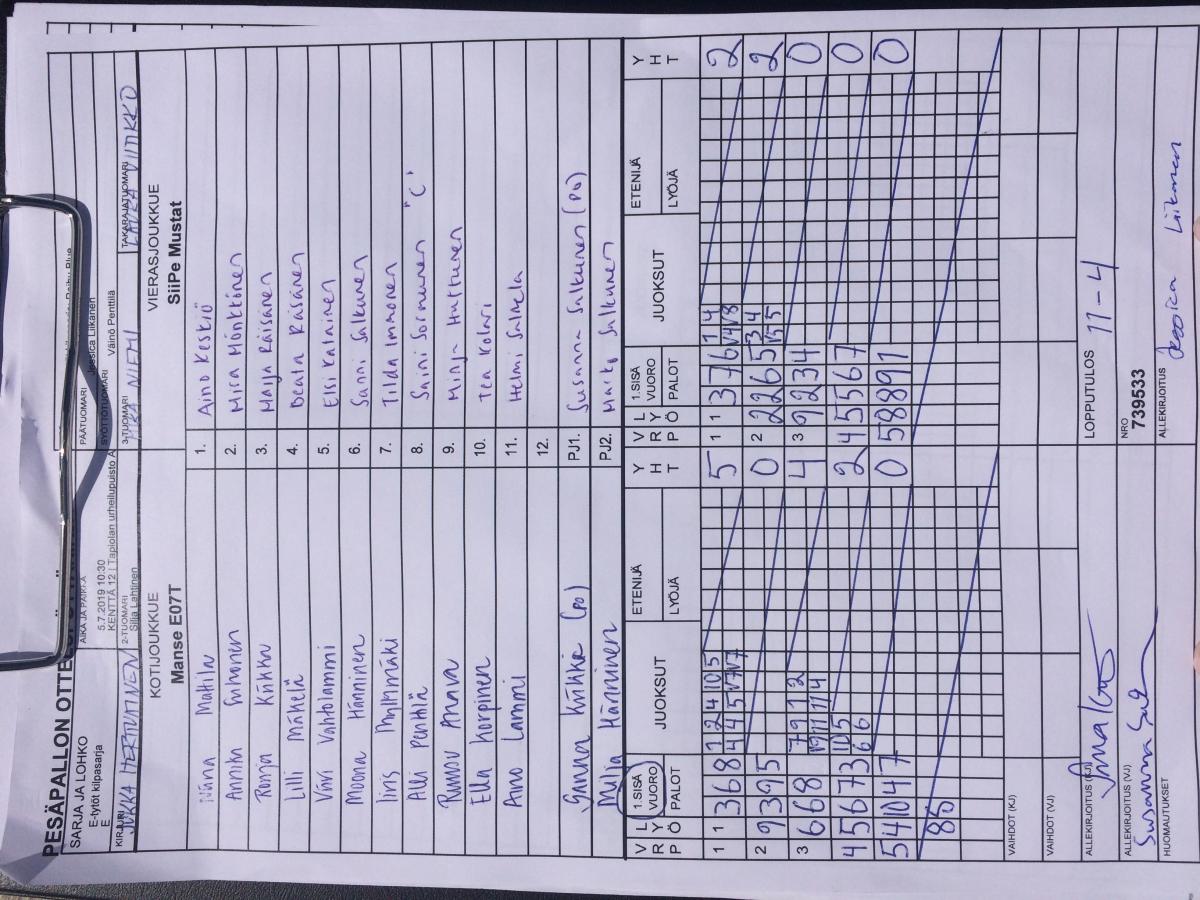 PESÄPALLON OTTELUPÖYTÄKIRJA
SARJA JA LOHKO
E-tytöt kilpasarja
E
AIKA JA PAIKKA
5.7.2019 10:30
KENTTÄ 12 | Tapiolan urheilupuisto A
PÄÄTUOMARI
Jessica Liikanen
SYÖTTÖTUOMARI Väinö Penttilä
KIRJURI JUKKA HERTTUAINEN
2-TUOMARI
Silja Lahtinen
3-TUOMARI NIEMI
TAKARAJATUOMARI LAURA VIITIKKO
KOTIJOUKKUE
Manse E07T
VIERASJOUKKUE
SiiPe Mustat
Matila 1. Aino Keskiö
Annika Suhonen 2. Mira Mönkkönen
Ronja Kiikka 3. Maija Räisänen
Lilli Mäkelä 4. Beata Räsänen
Viivi Vahtolammi 5. Elsi Katainen
Moona Hänninen 6. Sanni Salkunen
Iiris Myllymäki 7. Tilda Immonen
Alli Penttilä 8. Saini Sormunen "C"
Runov Anava 9. Minja Huttunen
Ella Korpinen 10. Tea Kolari
Aino Lammi 11. Helmi Salmela
12.
Sanna Kiikka (PO) PJ1. Susanna Salkunen (PO)
Milla Hänninen PJ2. Marko Salkunen
V R P L Y Ö 1.SISÄ VUORO PALOT JUOKSUT ETENIJÄ LYÖJÄ Y H T V R P L Y Ö 1.SISÄ VUORO PALOT JUOKSUT ETENIJÄ LYÖJÄ Y H T
1 1 3 6 8 1 2 4 10 5 5 1 1 3 7 6 1 4 2
4 4 5 V7 V7 V4 V8
2 9 3 9 5 0 2 2 2 6 5 3 4 2
V5 5
3 6 6 8 7 9 1 2 4 3 9 2 3 4 0
10 11 11 14
4 5 6 7 3 10 5 2 4 5 5 6 7 0
6 6
5 4 10 4 7 0 5 8 8 9 1 0
8 6
VAIHDOT (KJ)
VAIHDOT (VJ)
ALLEKIRJOITUS (KJ)
LOPPUTULOS 11-4
ALLEKIRJOITUS (VJ)
NRO
739533
HUOMAUTUKSET
ALLEKIRJOITUS Jessica Liikanen